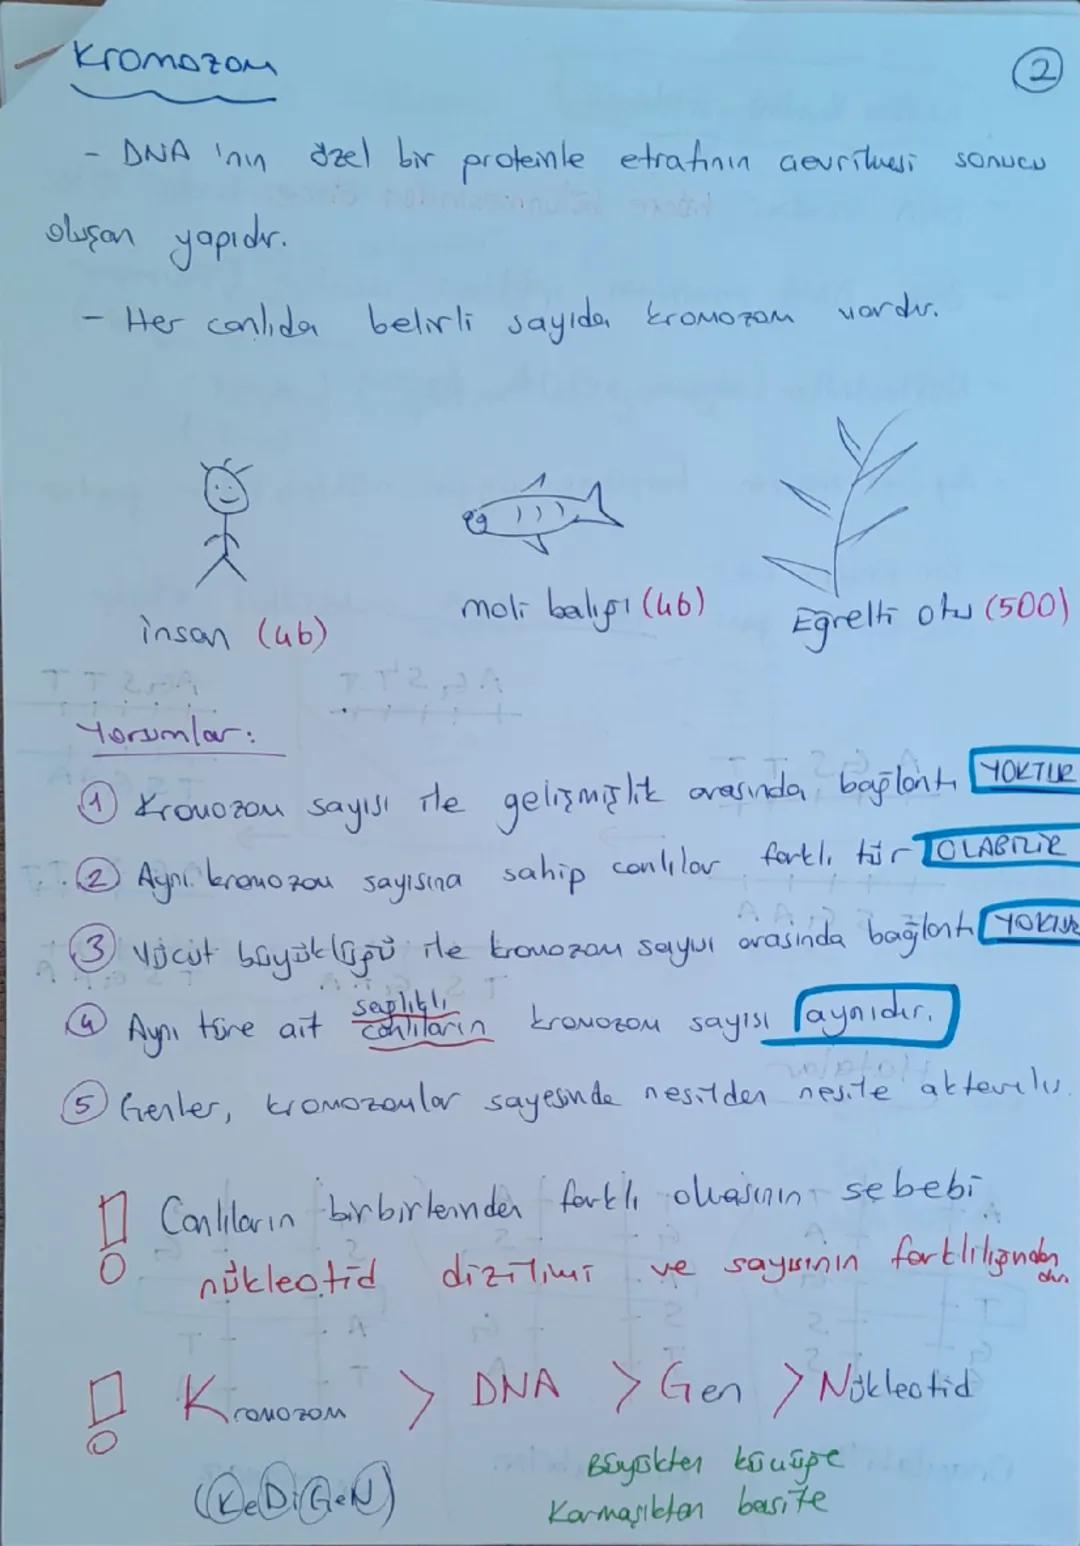 Kromozom
2
- DNA 'nın özel bir proteinle etrafının çevrilmesi sonucu
oluşan yapıdır.
- Her canlıda belirli sayıda kromozom vardır.
insan (46)
moli balığı (46)
Eğrelti otu (500)
Yorumlar:
1 Kromozom sayısı ile gelişmişlik arasında bağlantı YOKTUR
2 Aynı kromozom sayısına sahip canlılar farklı tür OLABİLİR
3 Vücut büyüklüğü ile kromozom sayısı arasında bağlantı YOKTUR
sağlıklı
4 Aynı türe ait canlıların kromozom sayısı aynıdır.
5 Genler, kromozomlar sayesinde nesilden nesile aktarılır.
! Canlıların birbirlerinden farklı olmasının sebebi
nükleotid dizilimi ve sayısının farklılığından
dır
! Kromozom > DNA > Gen > Nükleotid
Büyükten küçüğe
(KeDiGeN)
Karmaşıktan basite